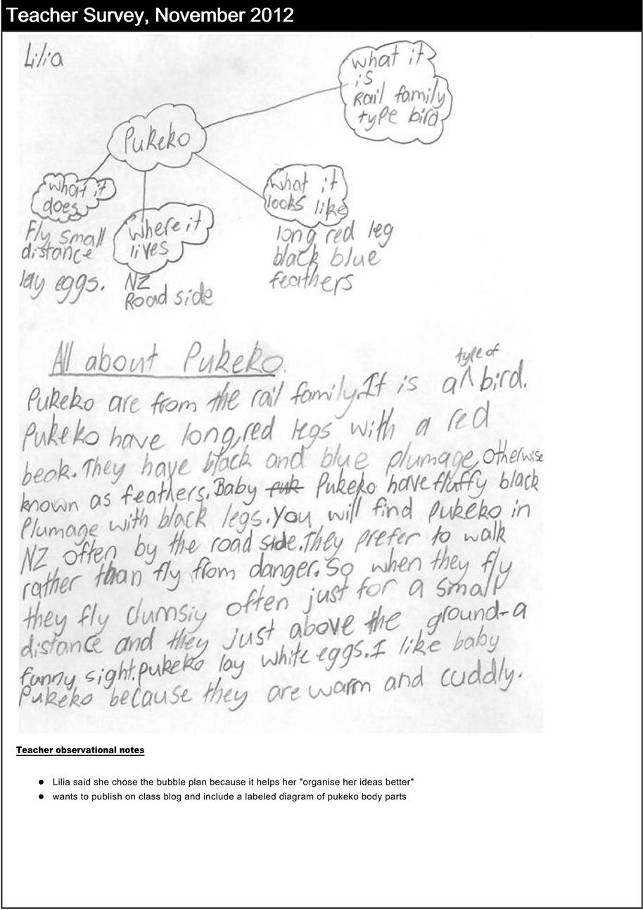 Teacher Survey, November 2012
Lilia
what it
is
Rail family
type bird
Pukeko
what it
does
Fly small
distance
lay eggs.
Where it
lives
NZ
Road side
what it
looks like
long red leg
black blue
feathers
All about Pukeko.
type of
Pukeko are from the rail family. It is a ^ bird.
Pukeko have long, red legs with a red
beak. They have black and blue plumage, otherwise
known as feathers. Baby puk Pukeko have fluffy black
Plumage with black legs. You will find pukeko in
NZ often by the road side. They prefer to walk
rather than fly from danger. So when they fly
they fly clumsiy often just for a small
distance and they just above the ground-a
funny sight. pukeko lay white eggs. I like baby
Pukeko because they are warm and cuddly.
Teacher observational notes
• Lilia said she chose the bubble plan because it helps her "organise her ideas better"
• wants to publish on class blog and include a labeled diagram of pukeko body parts